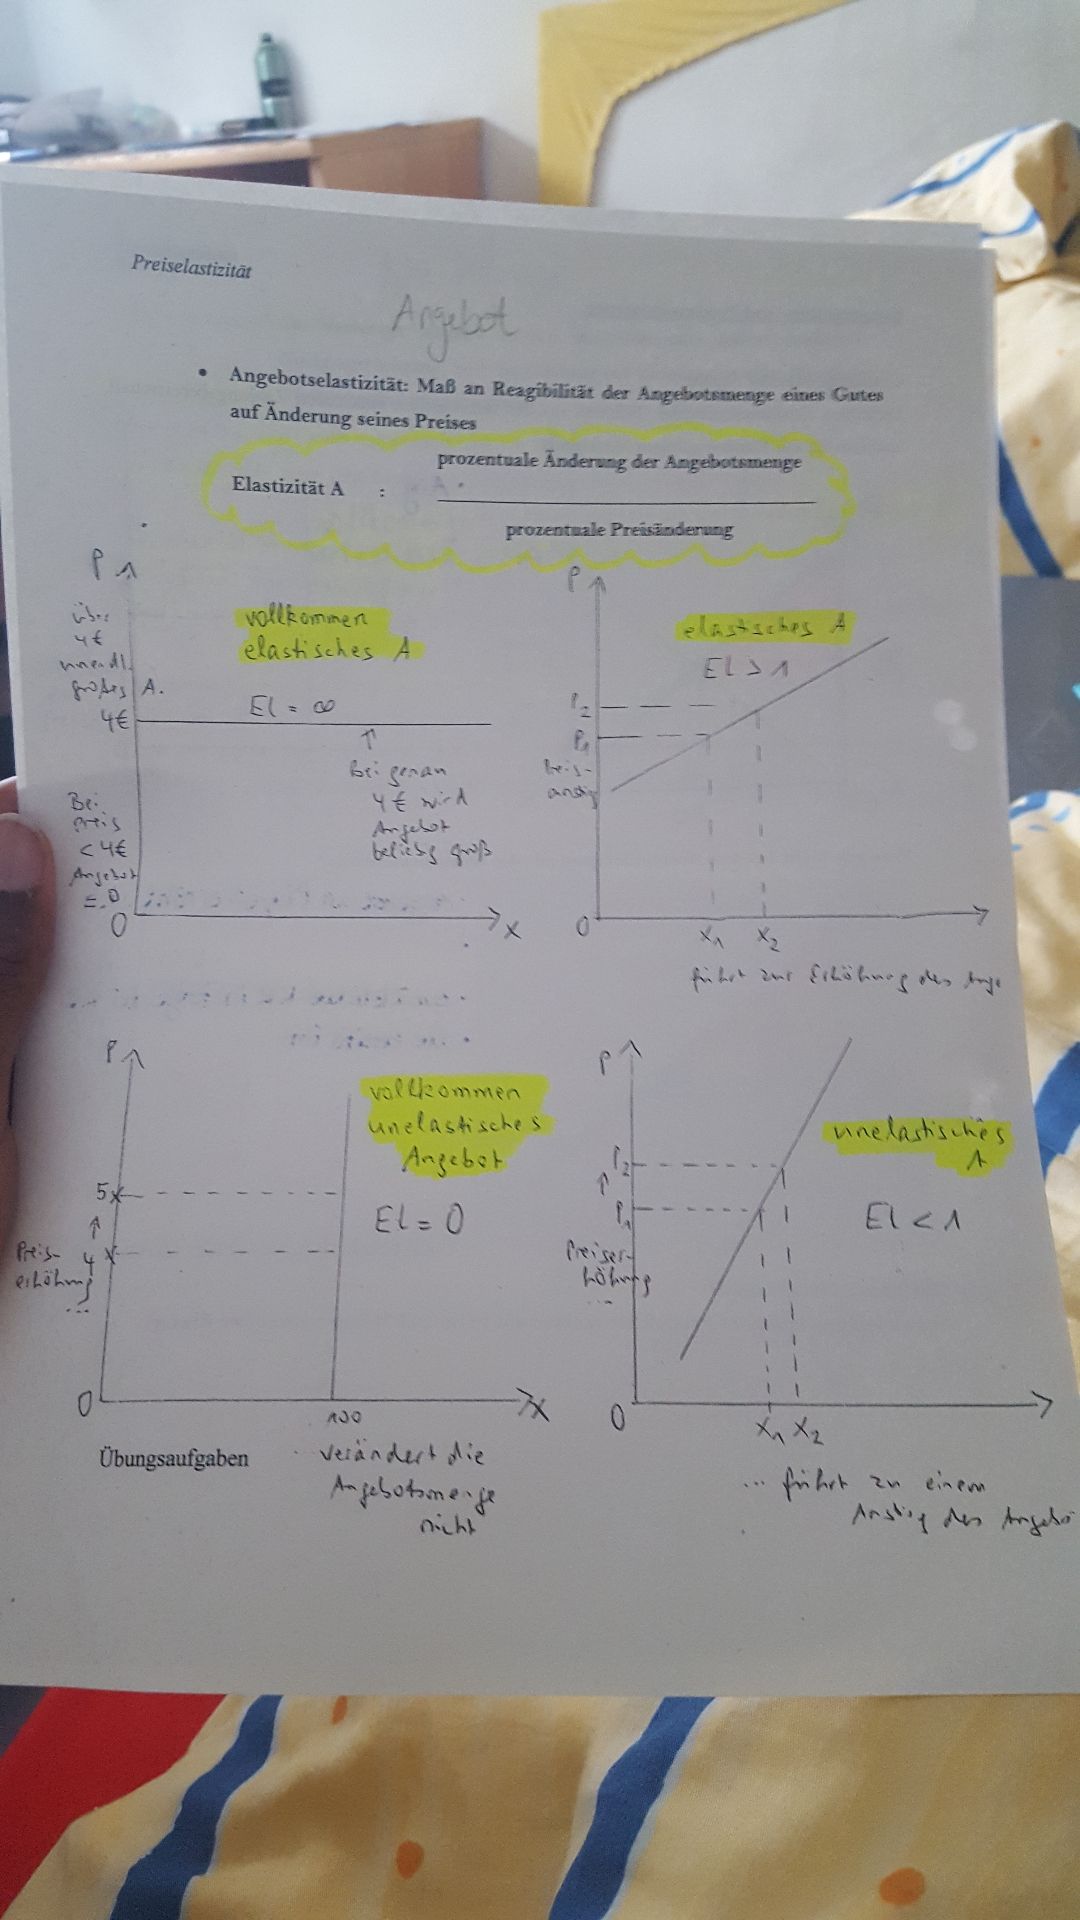 Preiselastizität
Angebot
• Angebotselastizität: Maß an Reagibilität der Angebotsmenge eines Gutes
auf Änderung seines Preises
prozentuale Änderung der Angebotsmenge
Elastizität A :
prozentuale Preisänderung
P
über
4€
unendl.
großes A.
4€
vollkommen
elastisches A
El = ∞
↑
Bei genau
4€ wird
Angebot
beliebig groß
Bei
Preis
< 4€
Angebot
= 0
0
x
P
elastisches A
El > 1
P2
P1
Preis-
anstieg
0
x1 x2
führt zur Erhöhung des Ange
P
vollkommen
unelastisches
Angebot
El = 0
5
↑
4
Preis-
erhöhung
...
0
100
x
Übungsaufgaben
... verändert die
Angebotsmenge
nicht
P
unelastisches
A
El < 1
P2
↑
P1
Preiser-
höhung
...
0
x1 x2
... führt zu einem
Anstieg des Angebo